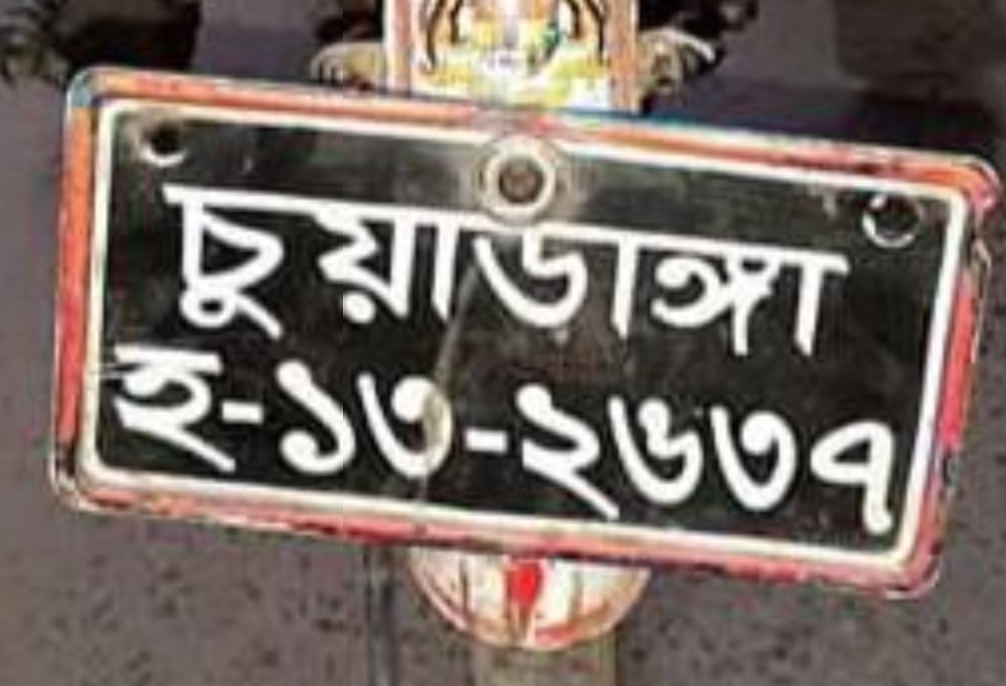 চুয়াডাঙ্গা
হ-১৩-২৬৩৭